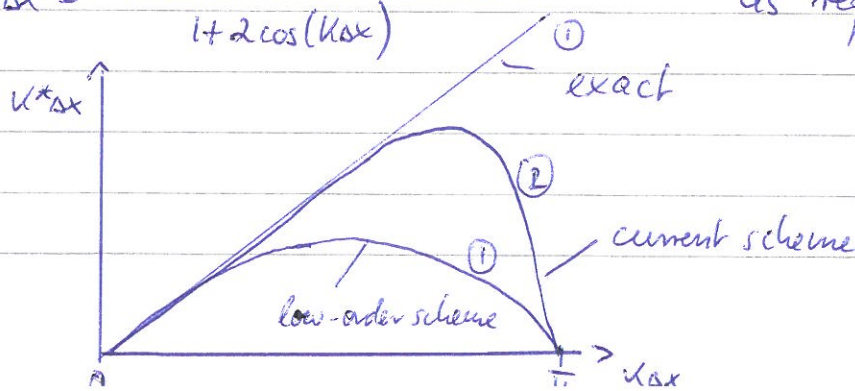 1+2cos(KΔx)
①
exact
K*Δx
②
current scheme
①
low-order scheme
KΔx